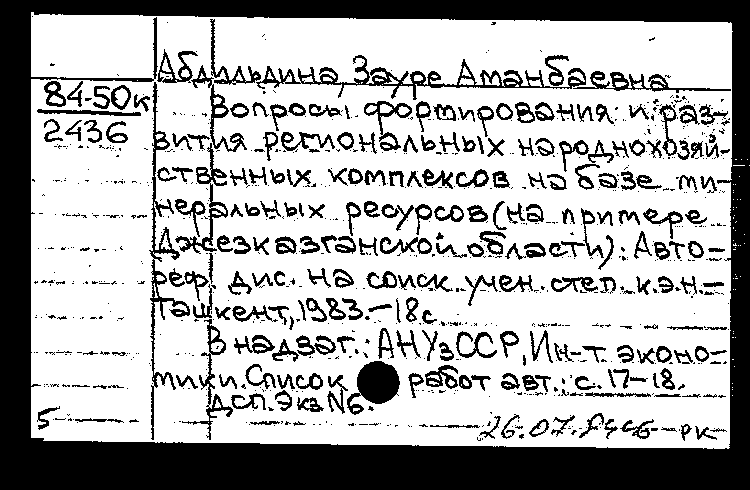 Абдильдина, Зауре Аманбаевна
84-50к
2436
Вопросы формирования и раз-
вития региональных народнохозяй-
ственных комплексов на базе ми-
неральных ресурсов (на примере
Джезказганской области): Авто-
реф. дис. на соиск. учен. степ. к.э.н.-
Ташкент, 1983.-18с.
В надзаг.: АН УзССР, Ин-т эконо-
мики. Список работ авт.: с. 17-18.
ДСП. Экз N6.
5
26.07.84